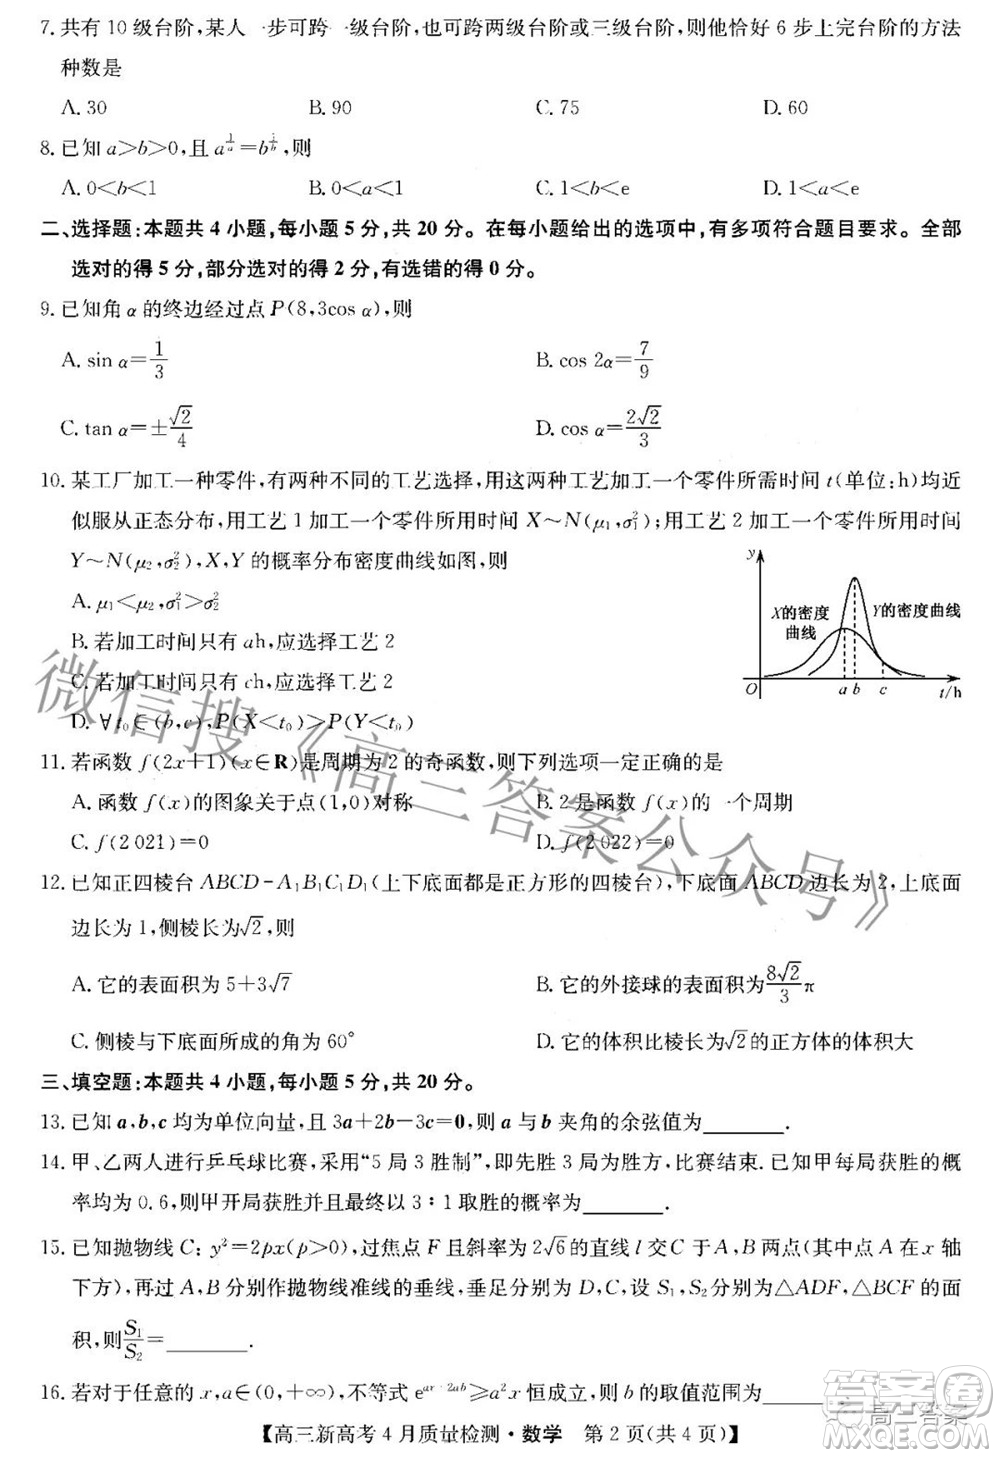 7. 共有 10 级台阶,某人一步可跨一级台阶,也可跨两级台阶或三级台阶,则他恰好 6 步上完台阶的方法
种数是
A. 30 B. 90 C. 75 D. 60
8. 已知 a>b>0,且 a^{1/a}=b^{1/b},则
A. 0<b<1 B. 0<a<1 C. 1<b<e D. 1<a<e
二、选择题:本题共 4 小题,每小题 5 分,共 20 分。在每小题给出的选项中,有多项符合题目要求。全部
选对的得 5 分,部分选对的得 2 分,有选错的得 0 分。
9. 已知角 α 的终边经过点 P(8,3cos α),则
A. sin α=1/3 B. cos 2α=7/9
C. tan α=±√2/4 D. cos α=2√2/3
10. 某工厂加工一种零件,有两种不同的工艺选择,用这两种工艺加工一个零件所需时间 t(单位:h)均近
似服从正态分布,用工艺 1 加工一个零件所用时间 X~N(μ₁,σ₁²);用工艺 2 加工一个零件所用时间
Y~N(μ₂,σ₂²),X,Y 的概率分布密度曲线如图,则
A. μ₁<μ₂,σ₁²>σ₂²
B. 若加工时间只有 ah,应选择工艺 2
C. 若加工时间只有 ch,应选择工艺 2
D. ∀t₀∈(b,c),P(X<t₀)>P(Y<t₀)
y
X的密度
曲线
Y的密度曲线
O a b c t/h
11. 若函数 f(2x+1)(x∈R)是周期为 2 的奇函数,则下列选项一定正确的是
A. 函数 f(x)的图象关于点(1,0)对称 B. 2 是函数 f(x)的一个周期
C. f(2 021)=0 D. f(2 022)=0
12. 已知正四棱台 ABCD-A₁B₁C₁D₁(上下底面都是正方形的四棱台),下底面 ABCD 边长为 2,上底面
边长为 1,侧棱长为√2,则
A. 它的表面积为 5+3√7 B. 它的外接球的表面积为 8√2/3 π
C. 侧棱与下底面所成的角为 60° D. 它的体积比棱长为√2的正方体的体积大
三、填空题:本题共 4 小题,每小题 5 分,共 20 分。
13. 已知 a,b,c 均为单位向量,且 3a+2b-3c=0,则 a 与 b 夹角的余弦值为________.
14. 甲、乙两人进行乒乓球比赛,采用“5 局 3 胜制”,即先胜 3 局为胜方,比赛结束. 已知甲每局获胜的概
率均为 0.6,则甲开局获胜并且最终以 3∶1 取胜的概率为________.
15. 已知抛物线 C: y²=2px(p>0),过焦点 F 且斜率为 2√6的直线 l 交 C 于 A,B 两点(其中点 A 在 x 轴
下方),再过 A,B 分别作抛物线准线的垂线,垂足分别为 D,C,设 S₁,S₂分别为△ADF,△BCF 的面
积,则S₁/S₂=________.
16. 若对于任意的 x,a∈(0,+∞),不等式 e^{ax-2ab}≥a²x 恒成立,则 b 的取值范围为________
【高三新高考 4 月质量检测·数学 第 2 页(共 4 页)】
微信搜《高三答案公众号》
答案圈
高三答案
MXQE.COM